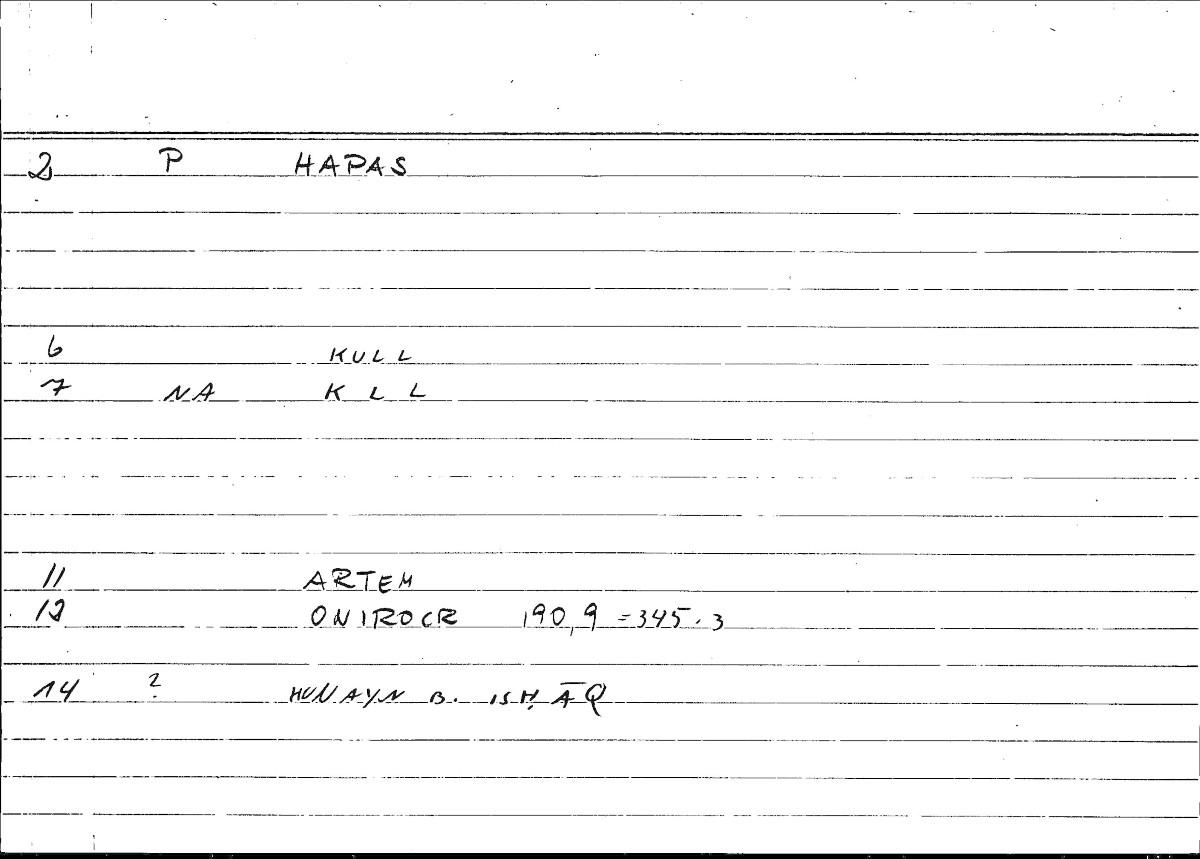 2 P HAPAS
6 KULL
7 NA K L L
11 ARTEM
12 ONIROCR 190,9 = 345.3
14 ? HUNAYN B. ISḤĀQ